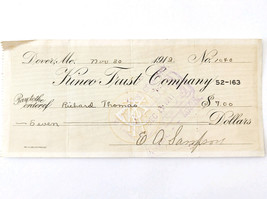 Dover, Me. Nov 20 1912 No. 1080
Kineo Trust Company 52-163
Pay to the order of Richard Thomas $7.00
Seven Dollars
E A Sampson